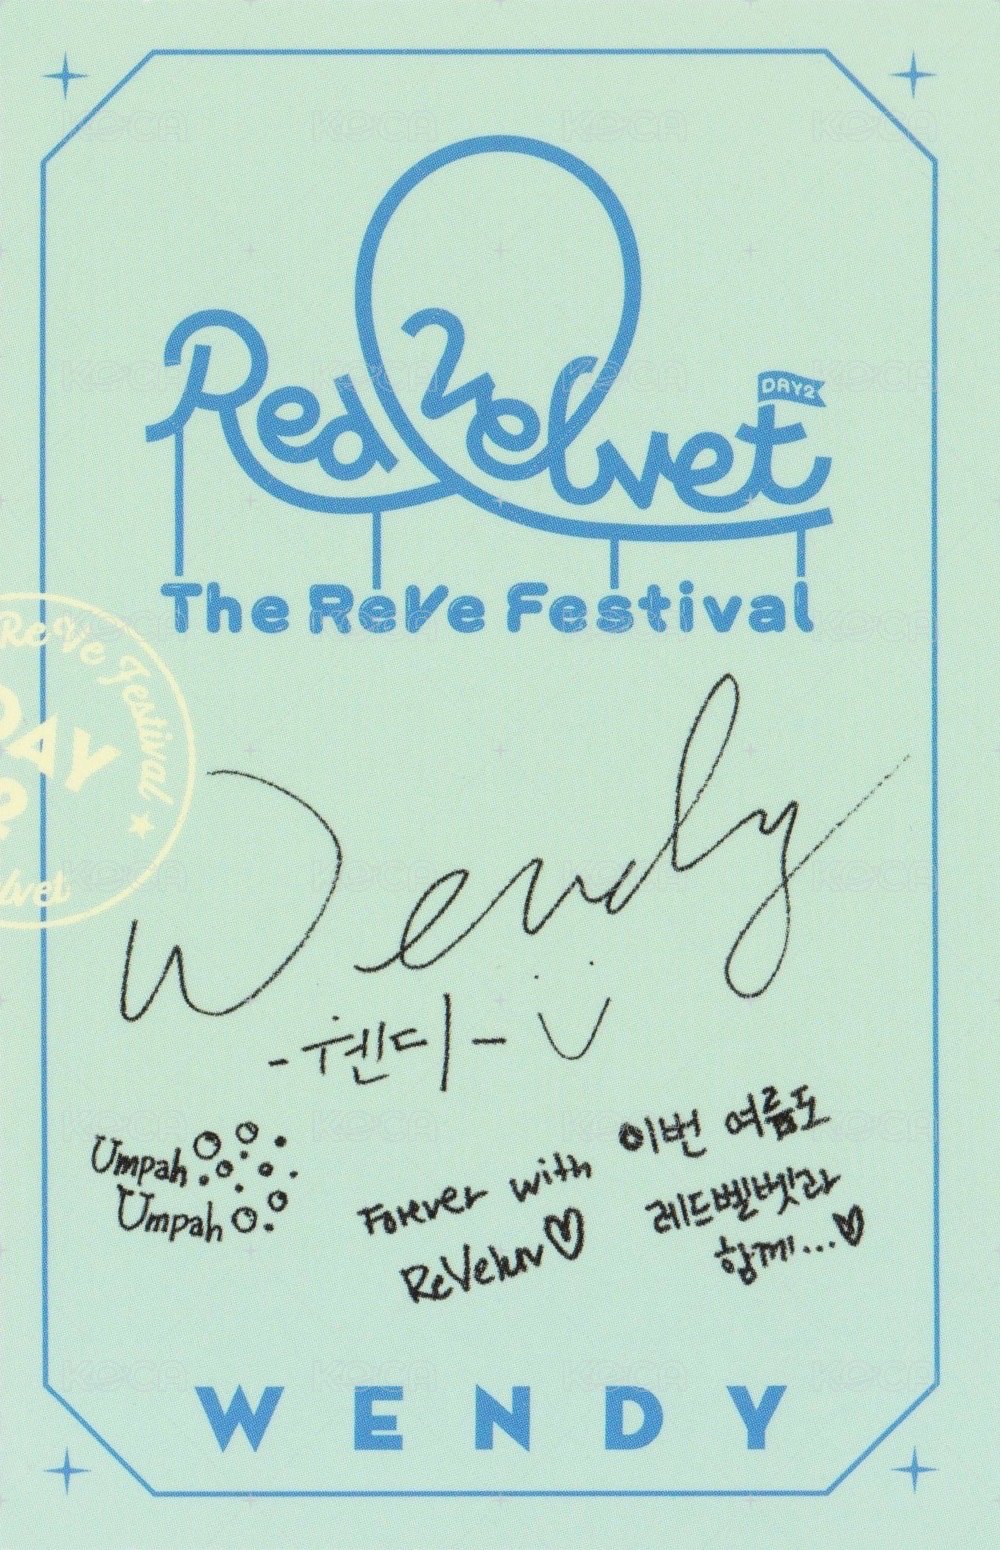 Red Velvet
DAY2
The ReVe Festival
ReVe Festival
DAY
2
lvet
Wendy
-웬디-
Umpah
Umpah
Forever with
ReVeluv♡
이번 여름도
레드벨벳과
함께...♡
WENDY
KOCA